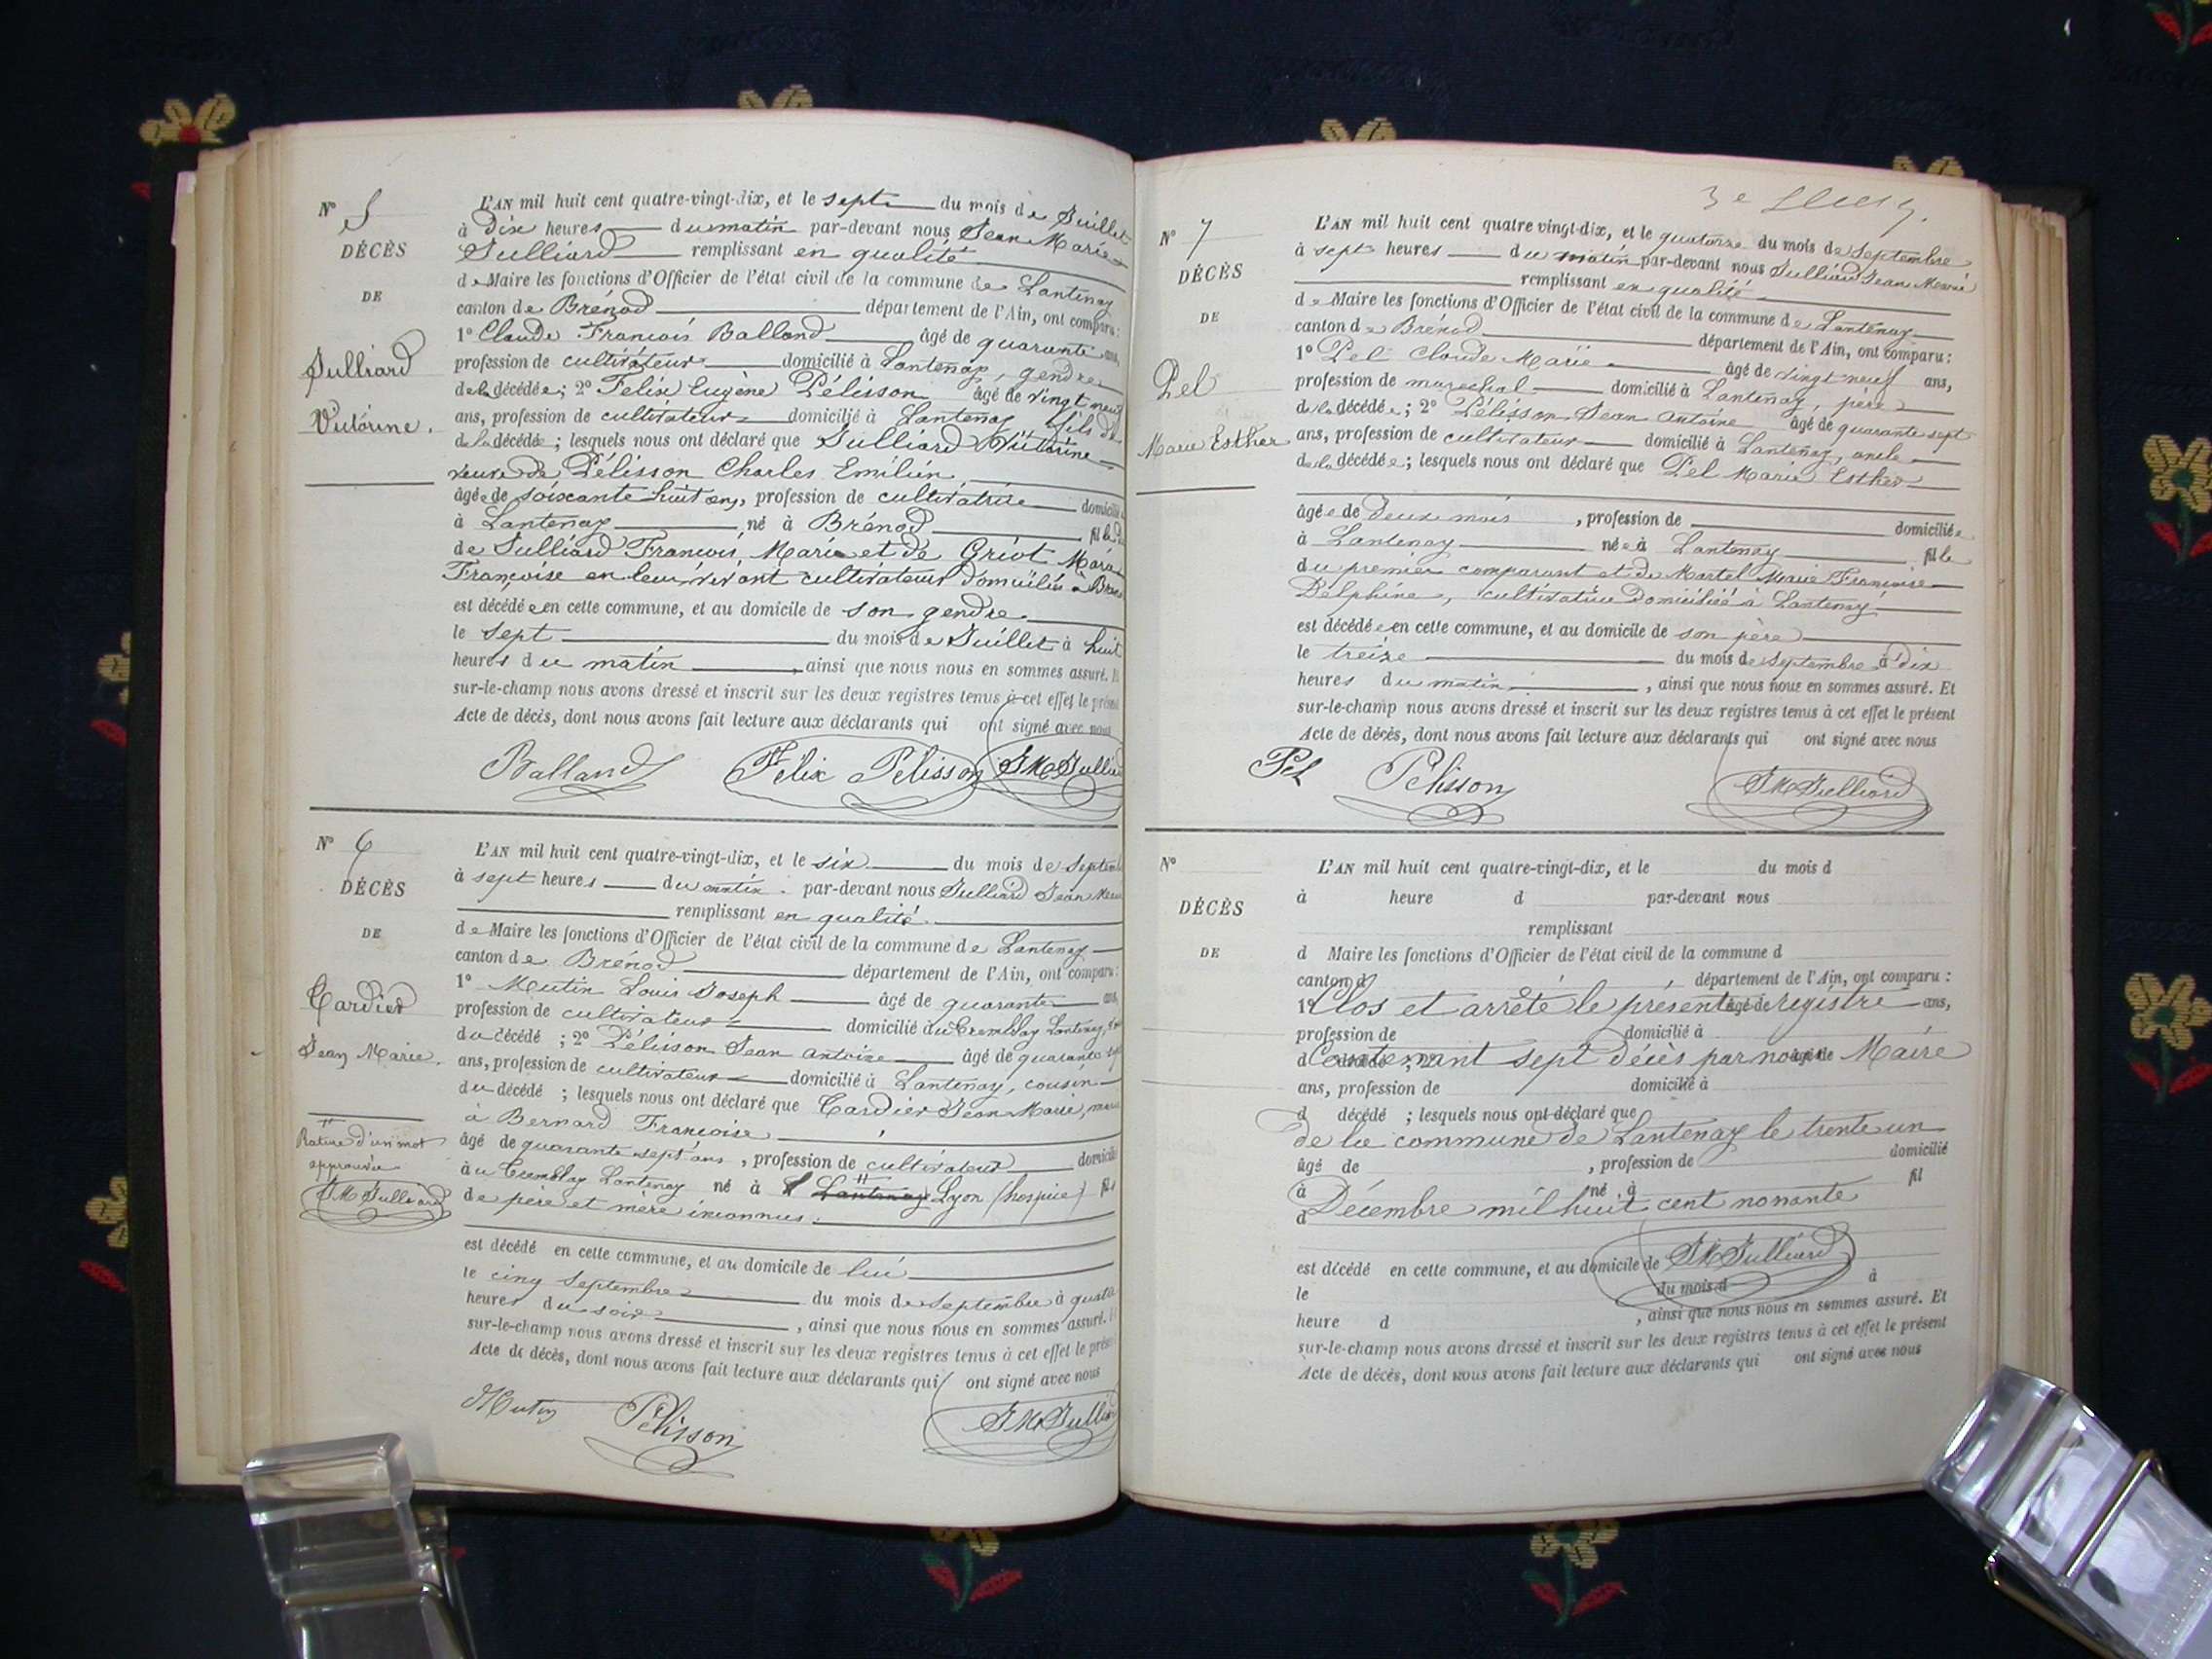 N° 5
DÉCÈS
DE
Julliard
Victorine.
L'AN mil huit cent quatre-vingt-dix, et le sept du mois de Juillet
à dix heures du matin par-devant nous Jean Marie
Julliard remplissant en qualité
de Maire les fonctions d'Officier de l'état civil de la commune de Lantenay
canton de Brénod département de l'Ain, ont comparu :
1° Claude François Balland âgé de quarante ans,
profession de cultivateur domicilié à Lantenay, gendre
de la décédée ; 2° Felix Eugène Pélisson âgé de vingt neuf
ans, profession de cultivateur domicilié à Lantenay fils de
de la décédée ; lesquels nous ont déclaré que Julliard Victorine
veuve de Pélisson Charles Emilien
âgée de soixante huit ans, profession de cultivatrice domicilié
à Lantenay né à Brénod fille
de Julliard François Marie et de Griot Marie
Françoise en leur vivant cultivateurs domiciliés à
est décédée en cette commune, et au domicile de son gendre
le sept du mois de Juillet à huit
heures du matin, ainsi que nous nous en sommes assuré.
sur-le-champ nous avons dressé et inscrit sur les deux registres tenus à cet effet le présent
Acte de décès, dont nous avons fait lecture aux déclarants qui ont signé avec nous
Balland Felix Pelisson JM Julliard
N° 6
DÉCÈS
DE
Cardier
Jean Marie.
Rature d'un mot
approuvée
JM Julliard
L'AN mil huit cent quatre-vingt-dix, et le six du mois de Septembre
à sept heures du matin par-devant nous Julliard Jean Marie
remplissant en qualité
de Maire les fonctions d'Officier de l'état civil de la commune de Lantenay
canton de Brénod département de l'Ain, ont comparu :
1° Mutin Louis Joseph âgé de quarante ans,
profession de cultivateur domicilié au Tremblay Lantenay,
du décédé ; 2° Pélisson Jean Antoine âgé de quarante sept
ans, profession de cultivateur domicilié à Lantenay, cousin
du décédé ; lesquels nous ont déclaré que Cardier Jean Marie,
à Bernard Françoise
âgé de quarante sept ans, profession de cultivateur domicilié
au Tremblay Lantenay né à Lantenay Lyon (hospice) fils
de père et mère inconnus.
est décédé en cette commune, et au domicile de lui
le cinq Septembre du mois de Septembre à quatre
heures du soir, ainsi que nous nous en sommes assuré.
sur-le-champ nous avons dressé et inscrit sur les deux registres tenus à cet effet le présent
Acte de décès, dont nous avons fait lecture aux déclarants qui ont signé avec nous
Mutin Pélisson JM Julliard
3e
N° 7
DÉCÈS
DE
Pel
Marie Esther
L'AN mil huit cent quatre vingt-dix, et le quatorze du mois de Septembre
à sept heures du matin par-devant nous Julliard Jean Marie
remplissant en qualité
de Maire les fonctions d'Officier de l'état civil de la commune de Lantenay
canton de Brénod département de l'Ain, ont comparu :
1° Pel Claude Marie âgé de vingt neuf ans,
profession de marechal domicilié à Lantenay, père
de la décédée ; 2° Pélisson Jean Antoine âgé de quarante sept
ans, profession de cultivateur domicilié à Lantenay, oncle
de la décédée ; lesquels nous ont déclaré que Pel Marie Esther
âgée de deux mois, profession de domiciliée
à Lantenay née à Lantenay fille
du premier comparant et de Martel Marie Françoise
Delphine, cultivatrice domiciliée à Lantenay
est décédée en cette commune, et au domicile de son père
le treize du mois de Septembre à dix
heures du matin, ainsi que nous nous en sommes assuré. Et
sur-le-champ nous avons dressé et inscrit sur les deux registres tenus à cet effet le présent
Acte de décès, dont nous avons fait lecture aux déclarants qui ont signé avec nous
Pel Pélisson JM Julliard
N°
DÉCÈS
DE
L'AN mil huit cent quatre-vingt-dix, et le du mois d
à heure d par-devant nous
remplissant
d Maire les fonctions d'Officier de l'état civil de la commune d
canton d département de l'Ain, ont comparu :
1° âgé de ans,
Clos et arrêté le présent registre
profession de domicilié à
d décédé ; 2° âgé de
Contenant sept décès par nous Maire
ans, profession de domicilié à
d décédé ; lesquels nous ont déclaré que
de la commune de Lantenay le trente un
âgé de , profession de domicilié
à né à fil
Décembre mil huit cent nonante
d
est décédé en cette commune, et au domicile de
JM Julliard
le du mois d à
heure d , ainsi que nous nous en sommes assuré. Et
sur-le-champ nous avons dressé et inscrit sur les deux registres tenus à cet effet le présent
Acte de décès, dont nous avons fait lecture aux déclarants qui ont signé avec nous